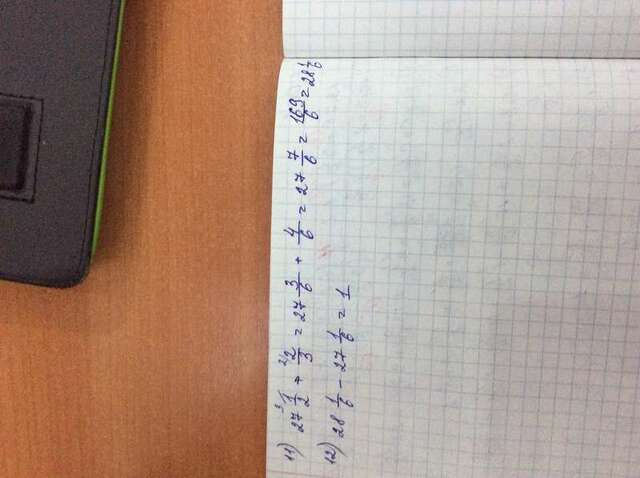 11) 27 3/ 1/2 + 2/ 2/3 = 27 3/6 + 4/6 = 27 7/6 = 169/6 = 28 1/6
12) 28 1/6 - 27 1/6 = 1